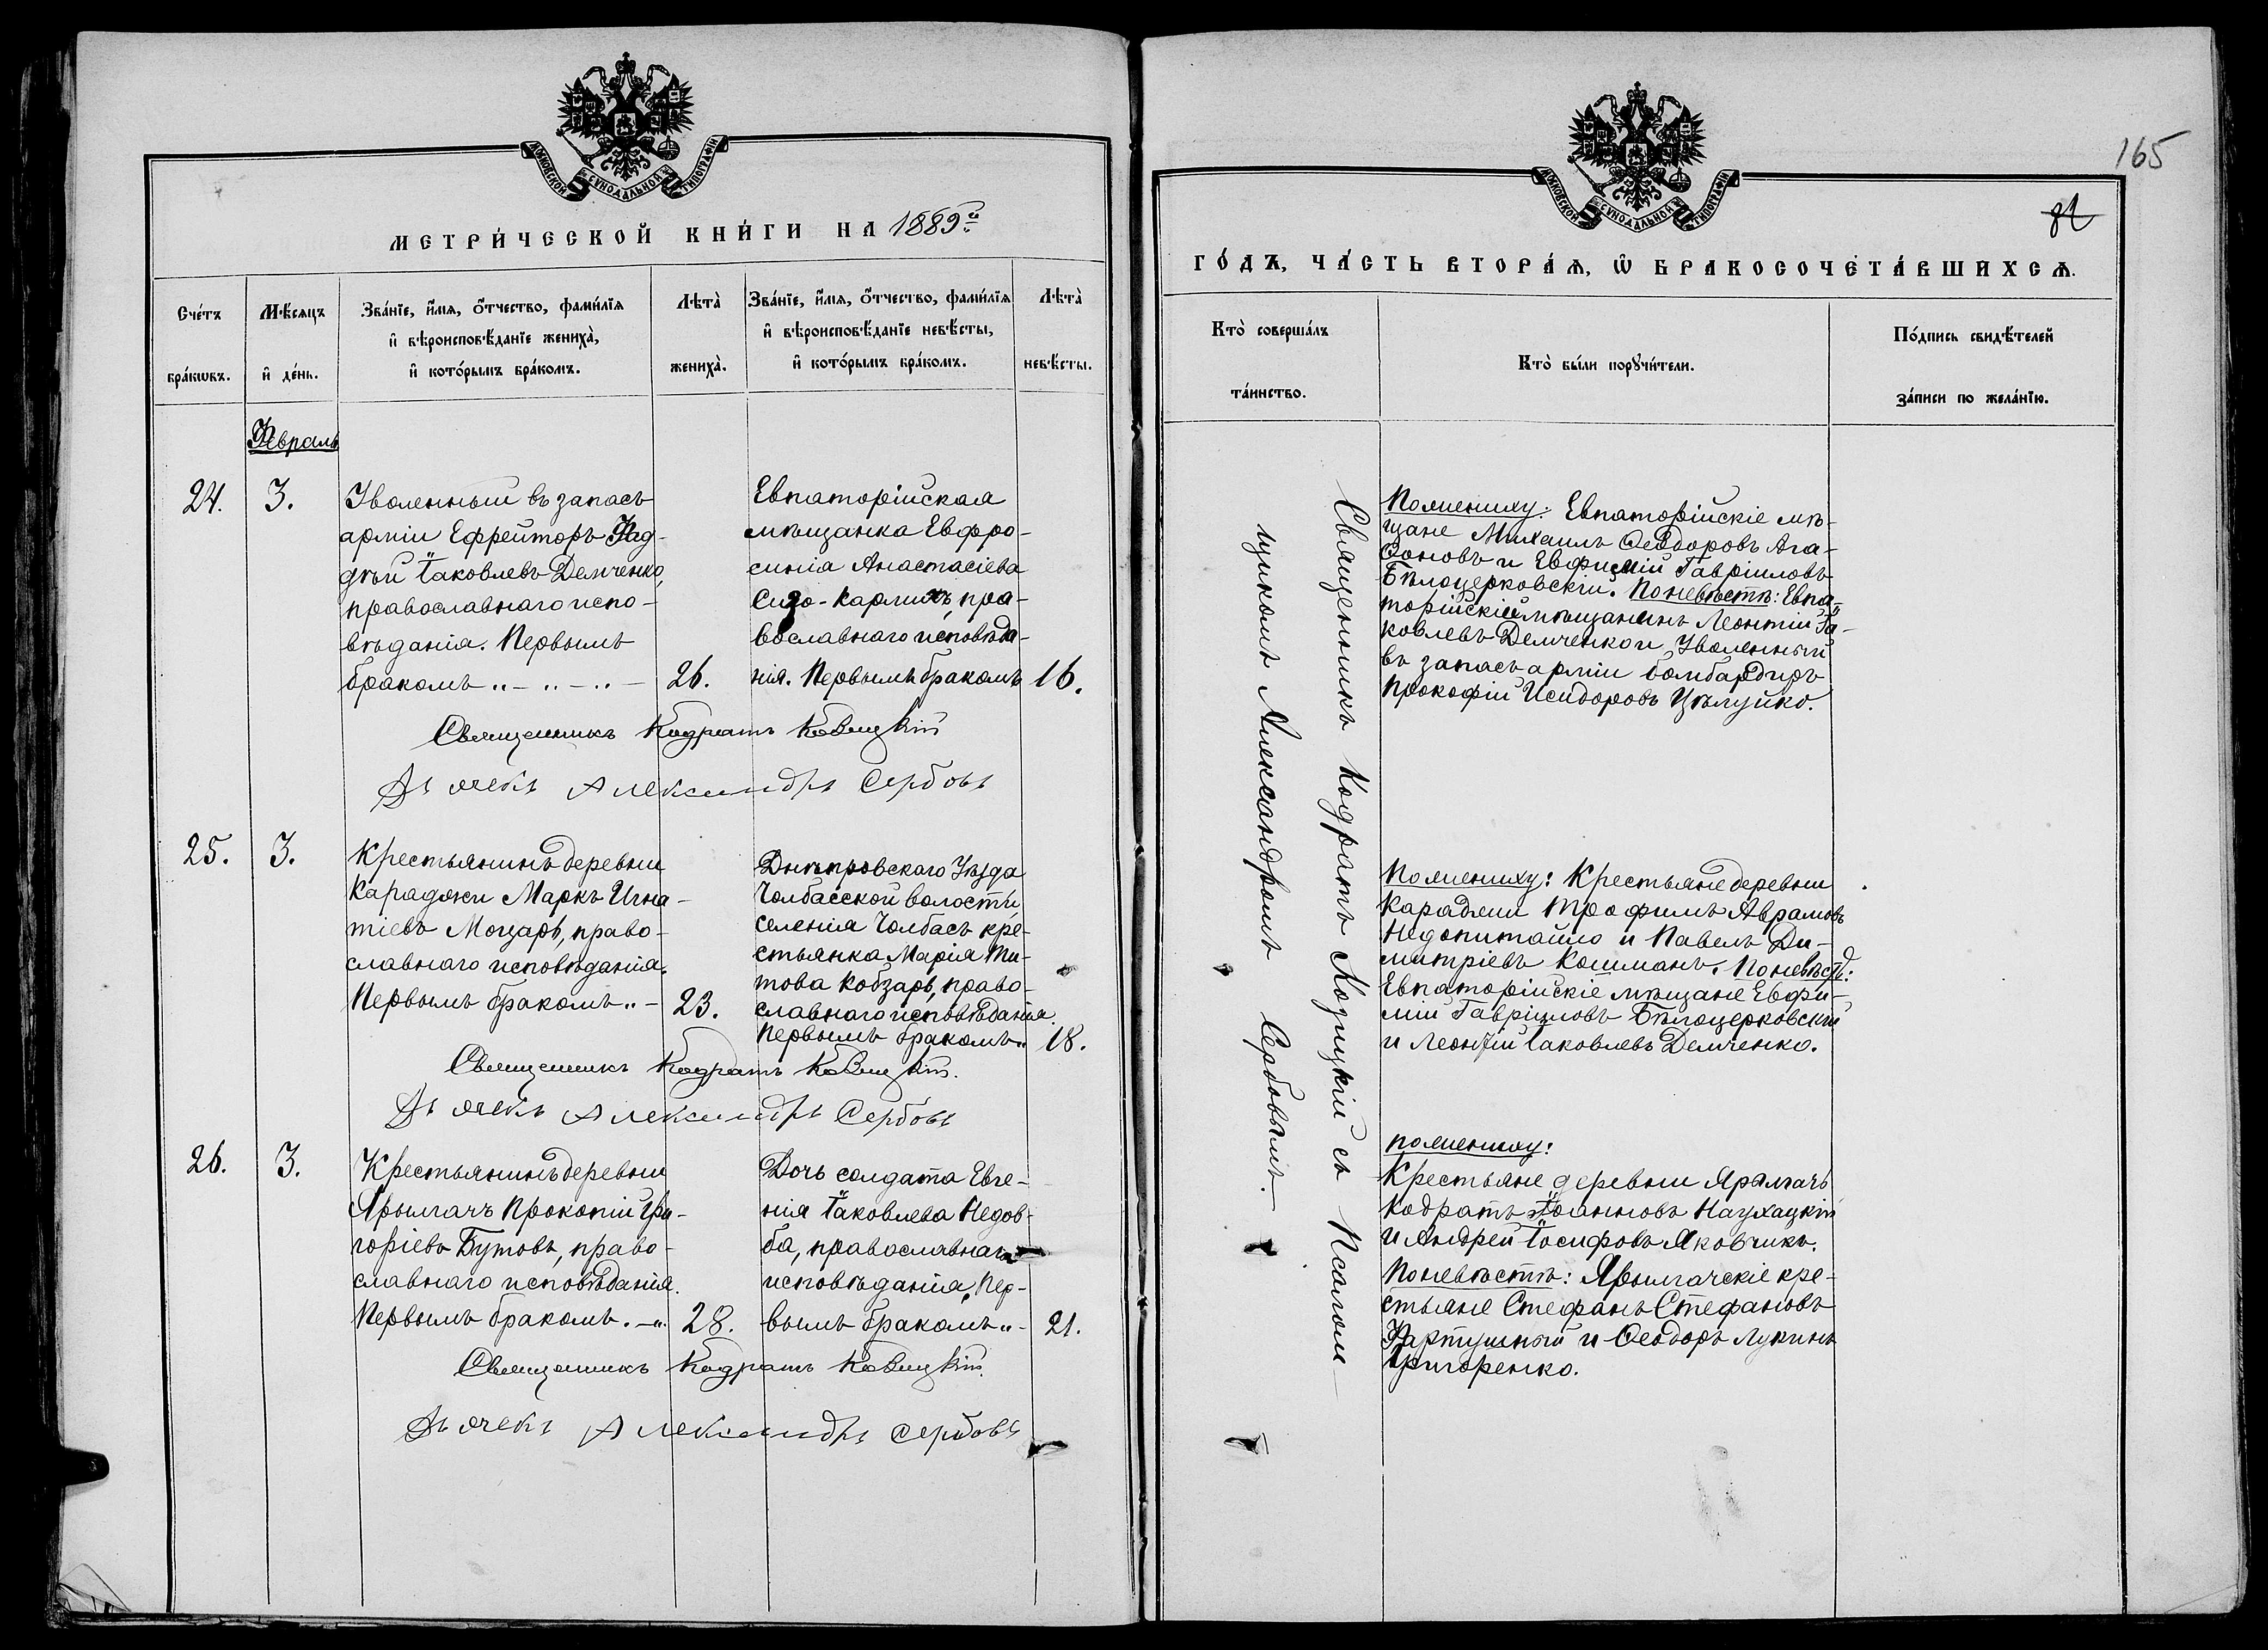 МОСКОВСКОЙ СУНОДАЛЬНОЙ ТИПОГРАФІИ
МЕТРИ́ЧЕСКОЙ КНИ́ГИ НА 1889й
Сче́тъ бра́кѡвъ.
Мѣ́сяцъ и҆ де́нь.
Зва́нїе, и҆́мѧ, ѻ҆́тчество, фами́лїѧ
и҆ вѣроисповѣ́данїе жениха̀,
и҆ кото́рымъ бра́комъ.
Лѣта̀ жениха̀.
Зва́нїе, и҆́мѧ, ѻ҆́тчество, фами́лїѧ
и҆ вѣроисповѣ́данїе невѣ́сты,
и҆ кото́рымъ бра́комъ.
Лѣта̀ невѣ́сты.
Февраль
24.
3.
Уволенный въ запасъ
арміи Ефрейторъ Фад-
дѣй Іаковлевъ Демченко,
православнаго испо-
вѣданія. Первымъ
бракомъ
26.
Евпаторійская
мѣщанка Евфро-
синія Анастасіева
Сизо-Кармихъ, пра-
вославнаго исповѣда-
нія. Первымъ бракомъ
16.
Священникъ Кодратъ Козицкій
Дьячекъ Александръ Сербовъ
25.
3.
Крестьянинъ деревни
Караджи Маркъ Игна-
тіевъ Моцарь, право-
славнаго исповѣданія.
Первымъ бракомъ
23.
Днѣпровскаго Уѣзда
Чолбасской волости
селенія Чолбасъ кре-
стьянка Марія Ти-
това Кобзарь, право-
славнаго исповѣданія.
Первымъ бракомъ
18.
Священникъ Кодратъ Козицкій.
Дьячекъ Александръ Сербовъ
26.
3.
Крестьянинъ деревни
Ярылгачъ Прокопій Гри-
горіевъ Бутовъ, право-
славнаго исповѣданія.
Первымъ бракомъ.
28.
Дочь солдата Евге-
нія Іаковлева Недов-
ба, православнаго
исповѣданія, Пер-
вымъ бракомъ
21.
Священникъ Кодратъ Козицкій.
Дьячекъ Александръ Сербовъ
165
МОСКОВСКОЙ СУНОДАЛЬНОЙ ТИПОГРАФІИ
ГО́ДЪ, ЧА́СТЬ ВТОРА́Ѧ, Ѽ БРАКОСОЧЕТА́ВШИХСѦ.
Кто̀ соверша́лъ
та́инство.
Кто̀ бы́ли порꙋчи́тели.
По́дпись свидѣ́телей
за́писи по жела́нїю.
Священникъ Кодратъ Козицкій съ Псалом-
щикомъ Александромъ Сербовымъ.
По жениху: Евпаторійскіе мѣ-
щане Михаилъ Ѳеодоровъ Ага-
ѳоновъ и Евфимій Гавріиловъ
Бѣлоцерковскій. По невѣстѣ: Евпа-
торійскій мѣщанинъ Леонтій Іа-
ковлевъ Демченко и Уволенный
въ запасъ арміи бомбардиръ
Прокофій Исидоровъ Цѣлуйко.
По жениху: Крестьяне деревни
Караджи Трофимъ Аврамовъ
Недопитайло и Павелъ Ди-
митріевъ Кошманъ. По невѣстѣ:
Евпаторійскіе мѣщане Евфи-
мій Гавріиловъ Бѣлоцерковскій
и Леонтій Іаковлевъ Демченко.
по жениху:
Крестьяне деревни Ярылгачъ
Кодратъ Іоанновъ Наухацкій
и Андрей Іосифовъ Яковчикъ.
По невѣстѣ: Ярылгачскіе кре-
стьяне Стефанъ Стефановъ
Фартушный и Ѳеодоръ Лукинъ
Григоренко.